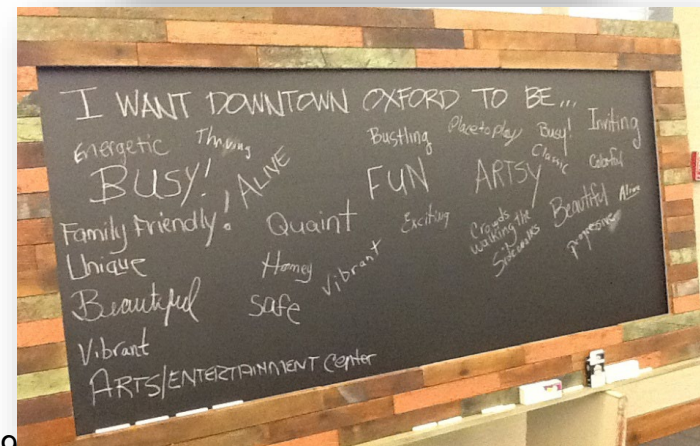 I WANT DOWNTOWN OXFORD TO BE...
Energetic
Thriving
BUSY!
ALIVE
Bustling
Place to play
Busy!
Inviting
Classic
Colorful
FUN
ARTSY
Family Friendly!
Quaint
Exciting
Crowds
walking the
Sidewalks
Beautiful
Alive
progressive
Unique
Homey
Vibrant
Beautiful
safe
Vibrant
ARTS/ENTERTAINMENT Center